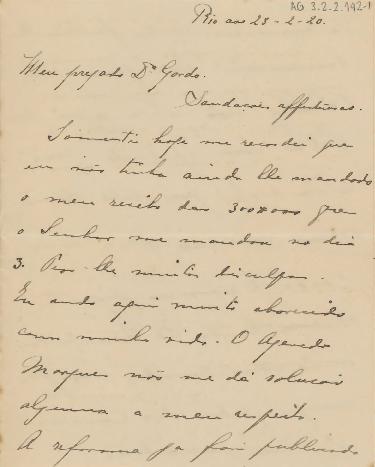 AG 3.2.2.142-1
Rio aos 23-2-20.
Meu prezado Dr. Gordo.
Saudações affectuosas.
Somente hoje me recordei que
eu não tinha ainda lhe mandado
o meu recibo dos 300#000 que
o Senhor me mandou no dia
3. Peço-lhe muitas disculpas.
Eu ando aqui muito aborrecido
com minha vida. O Azevedo
Marques não me dá solução
alguma a meu respeito.
A reforma ja foi publicada